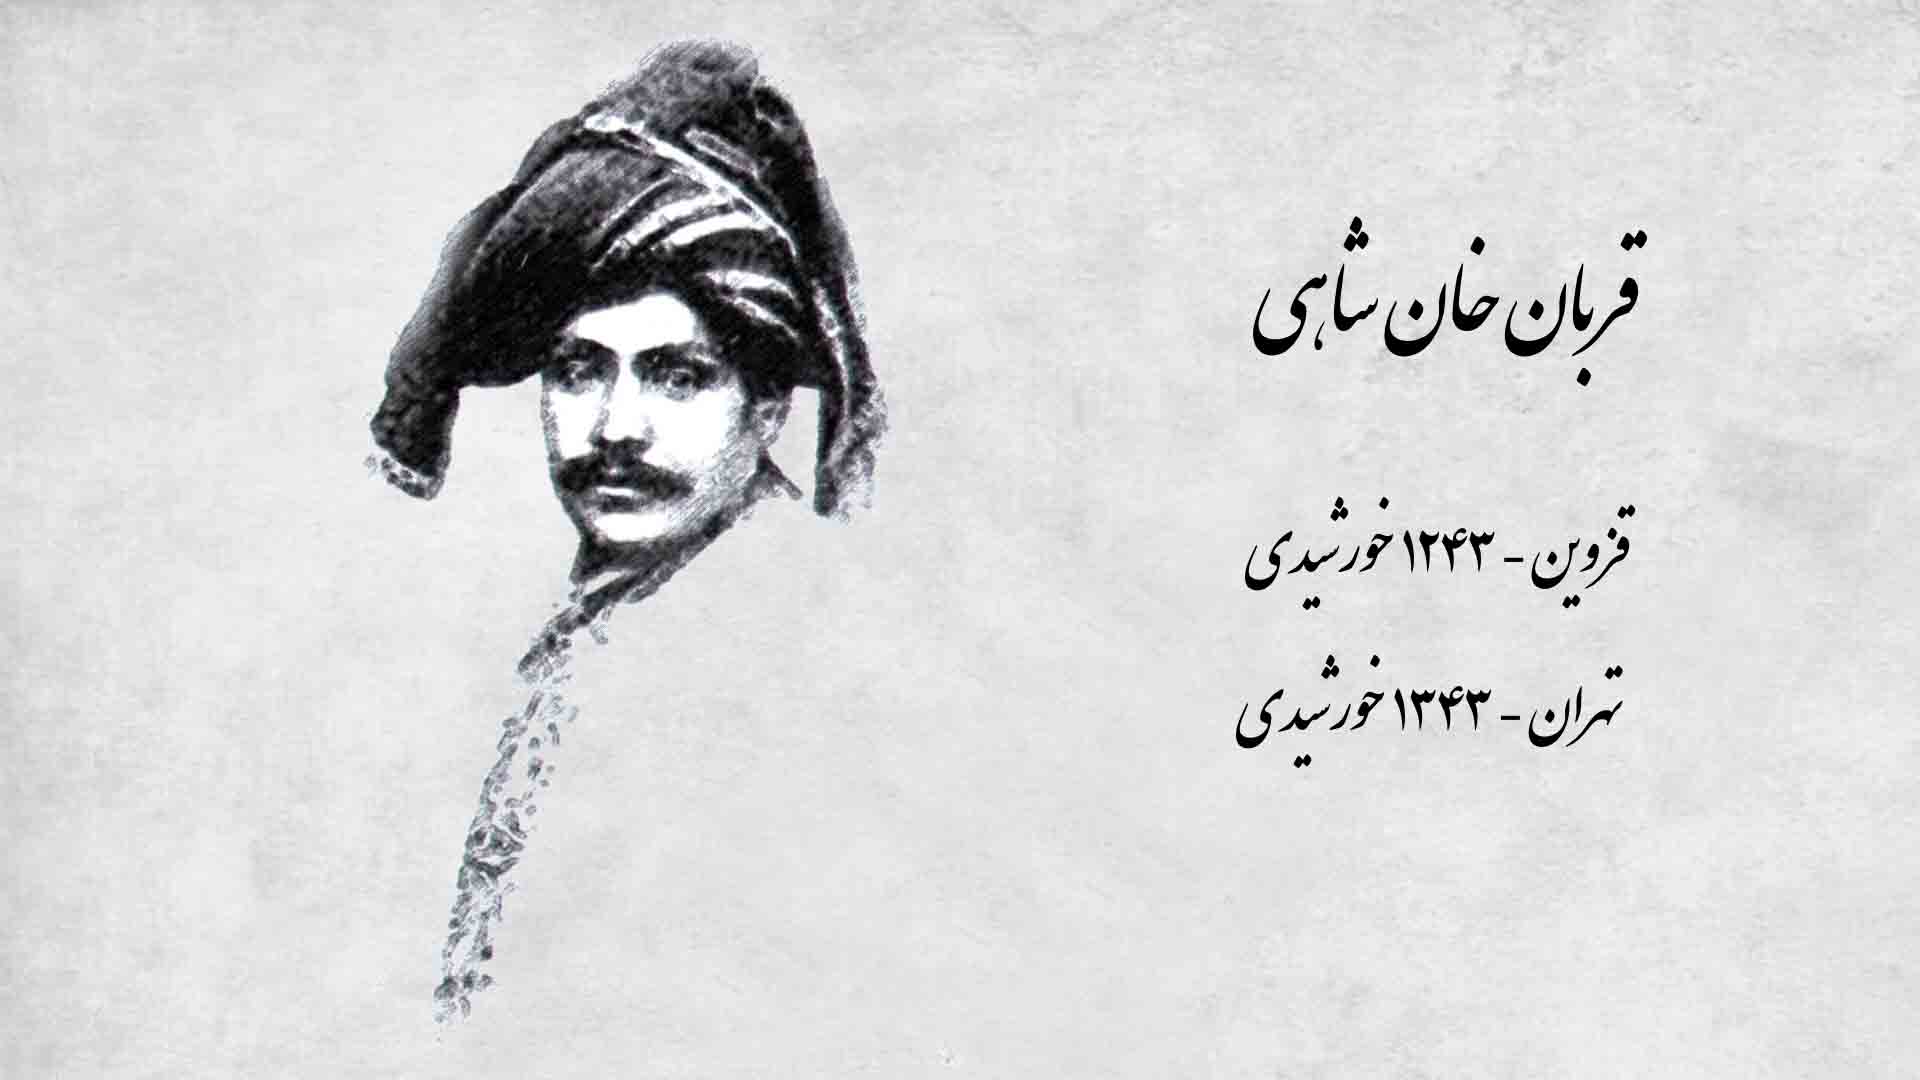 قربان خان شاهی
قزوین - ۱۲۴۳ خورشیدی
تهران - ۱۳۴۳ خورشیدی